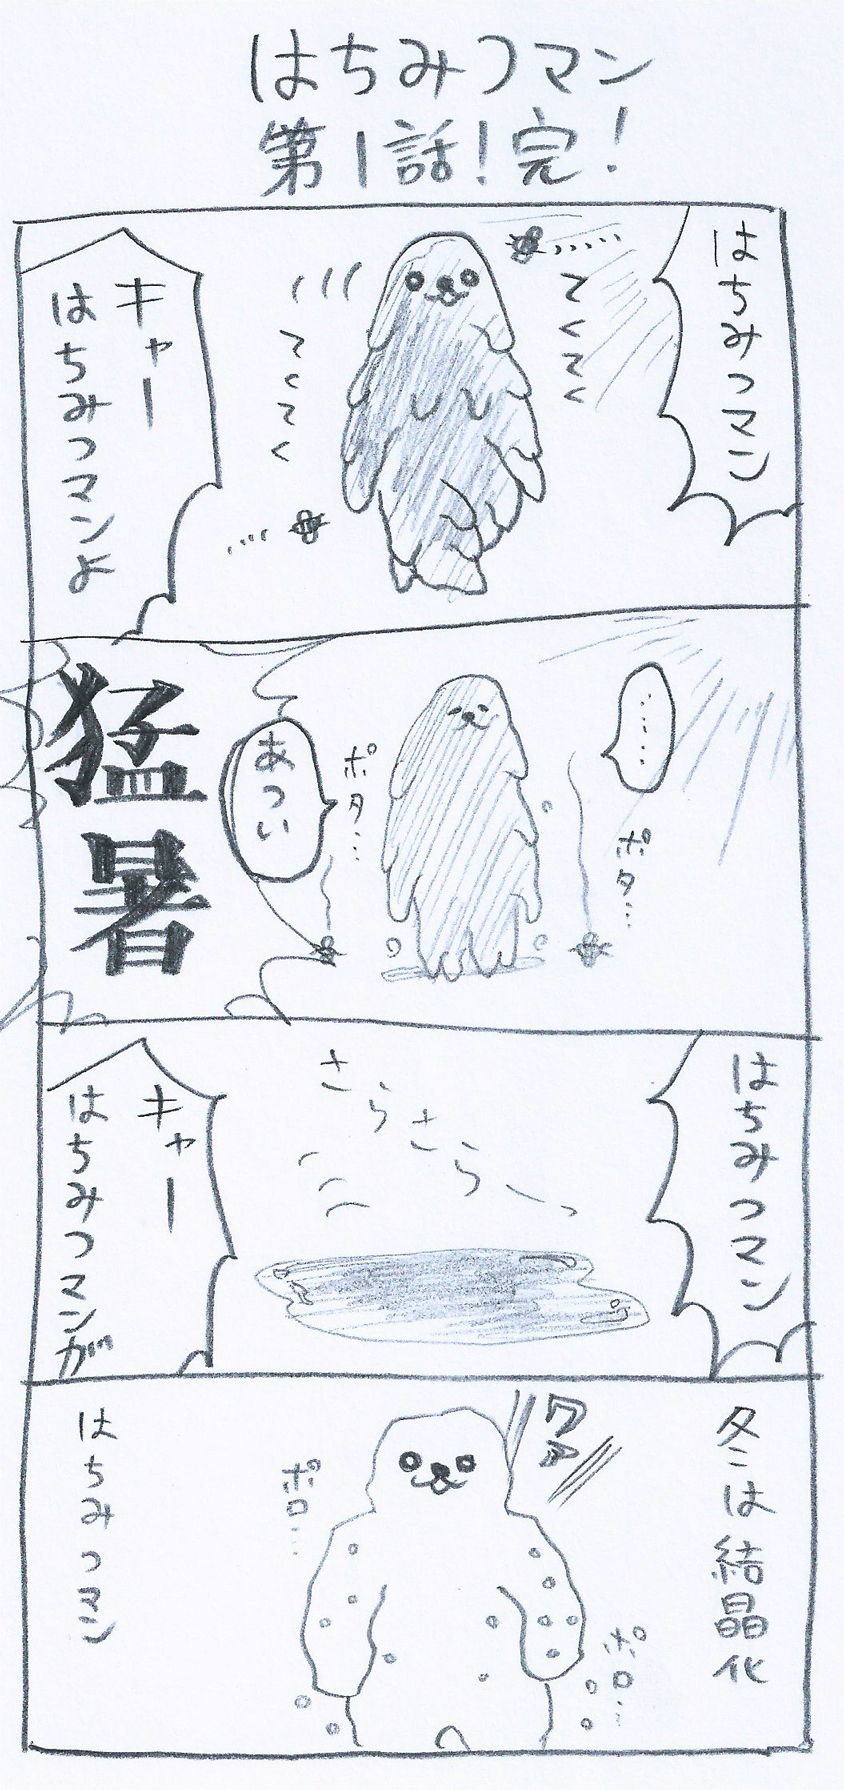 はちみつマン
第1話!完!
はちみつマン
てくてく
てくてく
キャー
はちみつマンよ
……
ポタ…
ポタ…
あつい
猛暑
はちみつマン
さらさらー
キャー
はちみつマンが
冬は結晶化
ワァ
ポロ…
ポロ…
はちみつマン